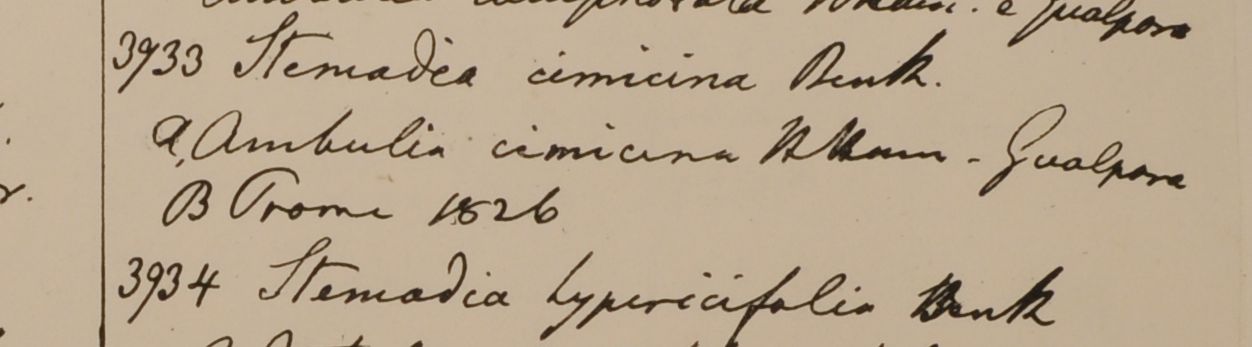 camphorata Ham. e Gualpara
3933 Stemadia cimicina Benth.
a, Ambulia cimicina Ham - Gualpara
B Prome 1826
3934 Stemadia hypericifolia Benth